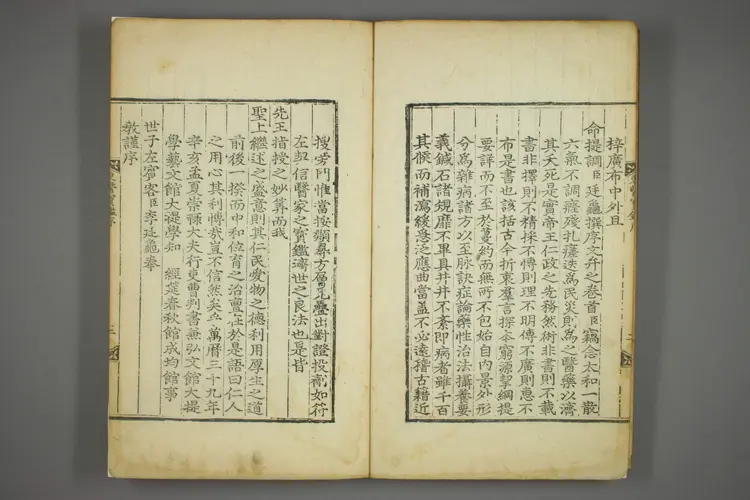 梓廣布中外且
命提調臣廷龜撰序文弁之卷首臣竊念太和一散
六氣不調癃殘扎瘥迭爲民災則爲之醫藥以濟
其夭死是實帝王仁政之先務然術非書則不載
書非擇則不精採不博則理不明傳不廣則惠不
布是書也該括古今折衷羣言探本窮源挈綱提
要詳而不至於蔓約而無所不包始自內景外形
分爲雜病諸方以至脉訣症論藥性治法攝養要
義鍼石諸規靡不畢具井井不紊即病者雖千百
其候而補瀉緩急泛應曲當盖不必遠稽古籍近
搜旁門惟當按類尋方層見疊出對證投劑如符
左契信醫家之寶鑑濟世之良法也是皆
先王指授之妙筭而我
聖上繼述之盛意則其仁民愛物之德利用厚生之道
前後一揆而中和位育之治亶在於是語曰仁人
之用心其利博哉豈不信然矣乎萬曆三十九年
辛亥孟夏崇祿大夫行吏曹判書兼弘文館大提
學藝文館大提學知 經筵春秋館成均館事
世子左賓客臣李廷龜奉
敎謹序